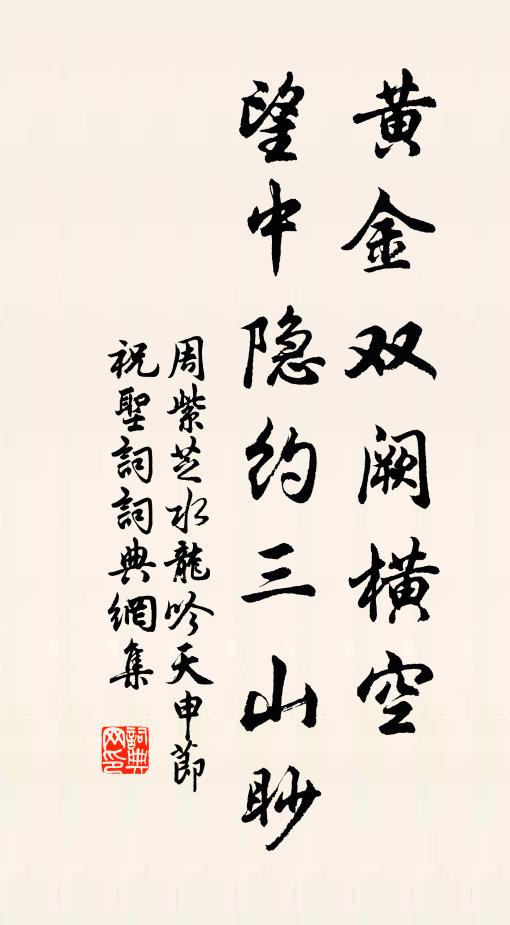 黄金双阙横空
望中隐约三山眇
周紫芝水龍吟天申節
祝聖詞詞典網集
詞典网印